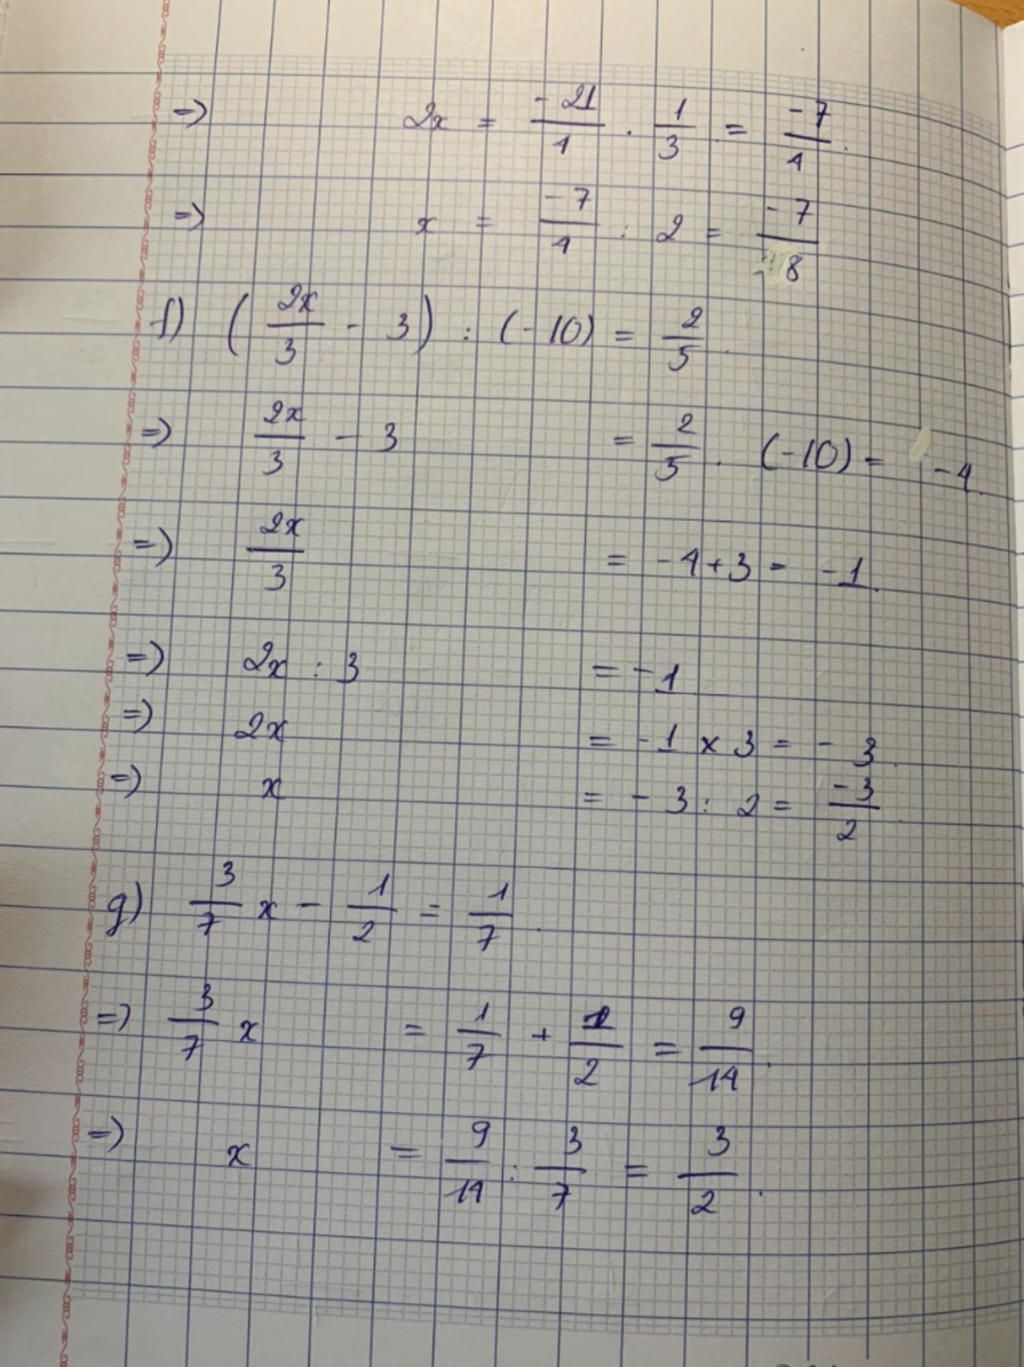 => 2x = -21/4 . 1/3 = -7/4.
=> x = -7/4 : 2 = -7/8
f) (2x/3 - 3) : (-10) = 2/5.
=> 2x/3 - 3 = 2/5 . (-10) = -4.
=> 2x/3 = -4 + 3 = -1.
=> 2x : 3 = -1
=> 2x = -1 x 3 = -3.
=> x = -3 : 2 = -3/2.
g) 3/7 x - 1/2 = 1/7.
=> 3/7 x = 1/7 + 1/2 = 9/14.
=> x = 9/14 : 3/7 = 3/2.